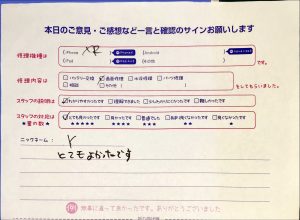 本日のご意見・ご感想など一言と確認のサインお願いします
修理機種は
iPhone XR
Android
iPad
です。
修理内容は
バッテリー交換 画面修理 水没修理 パーツ修理
をしてもらいました。
スタッフの説明は
わかりやすかったです 理解できました 難しかったです
スタッフの対応は
とても良かったです 良かったです 普通でした
★星の数★
★★★★★ ★★★★ ★★★ ★★ ★
ニックネーム: Y
とてもよかったです
無事に直って良かったです。ありがとうございました